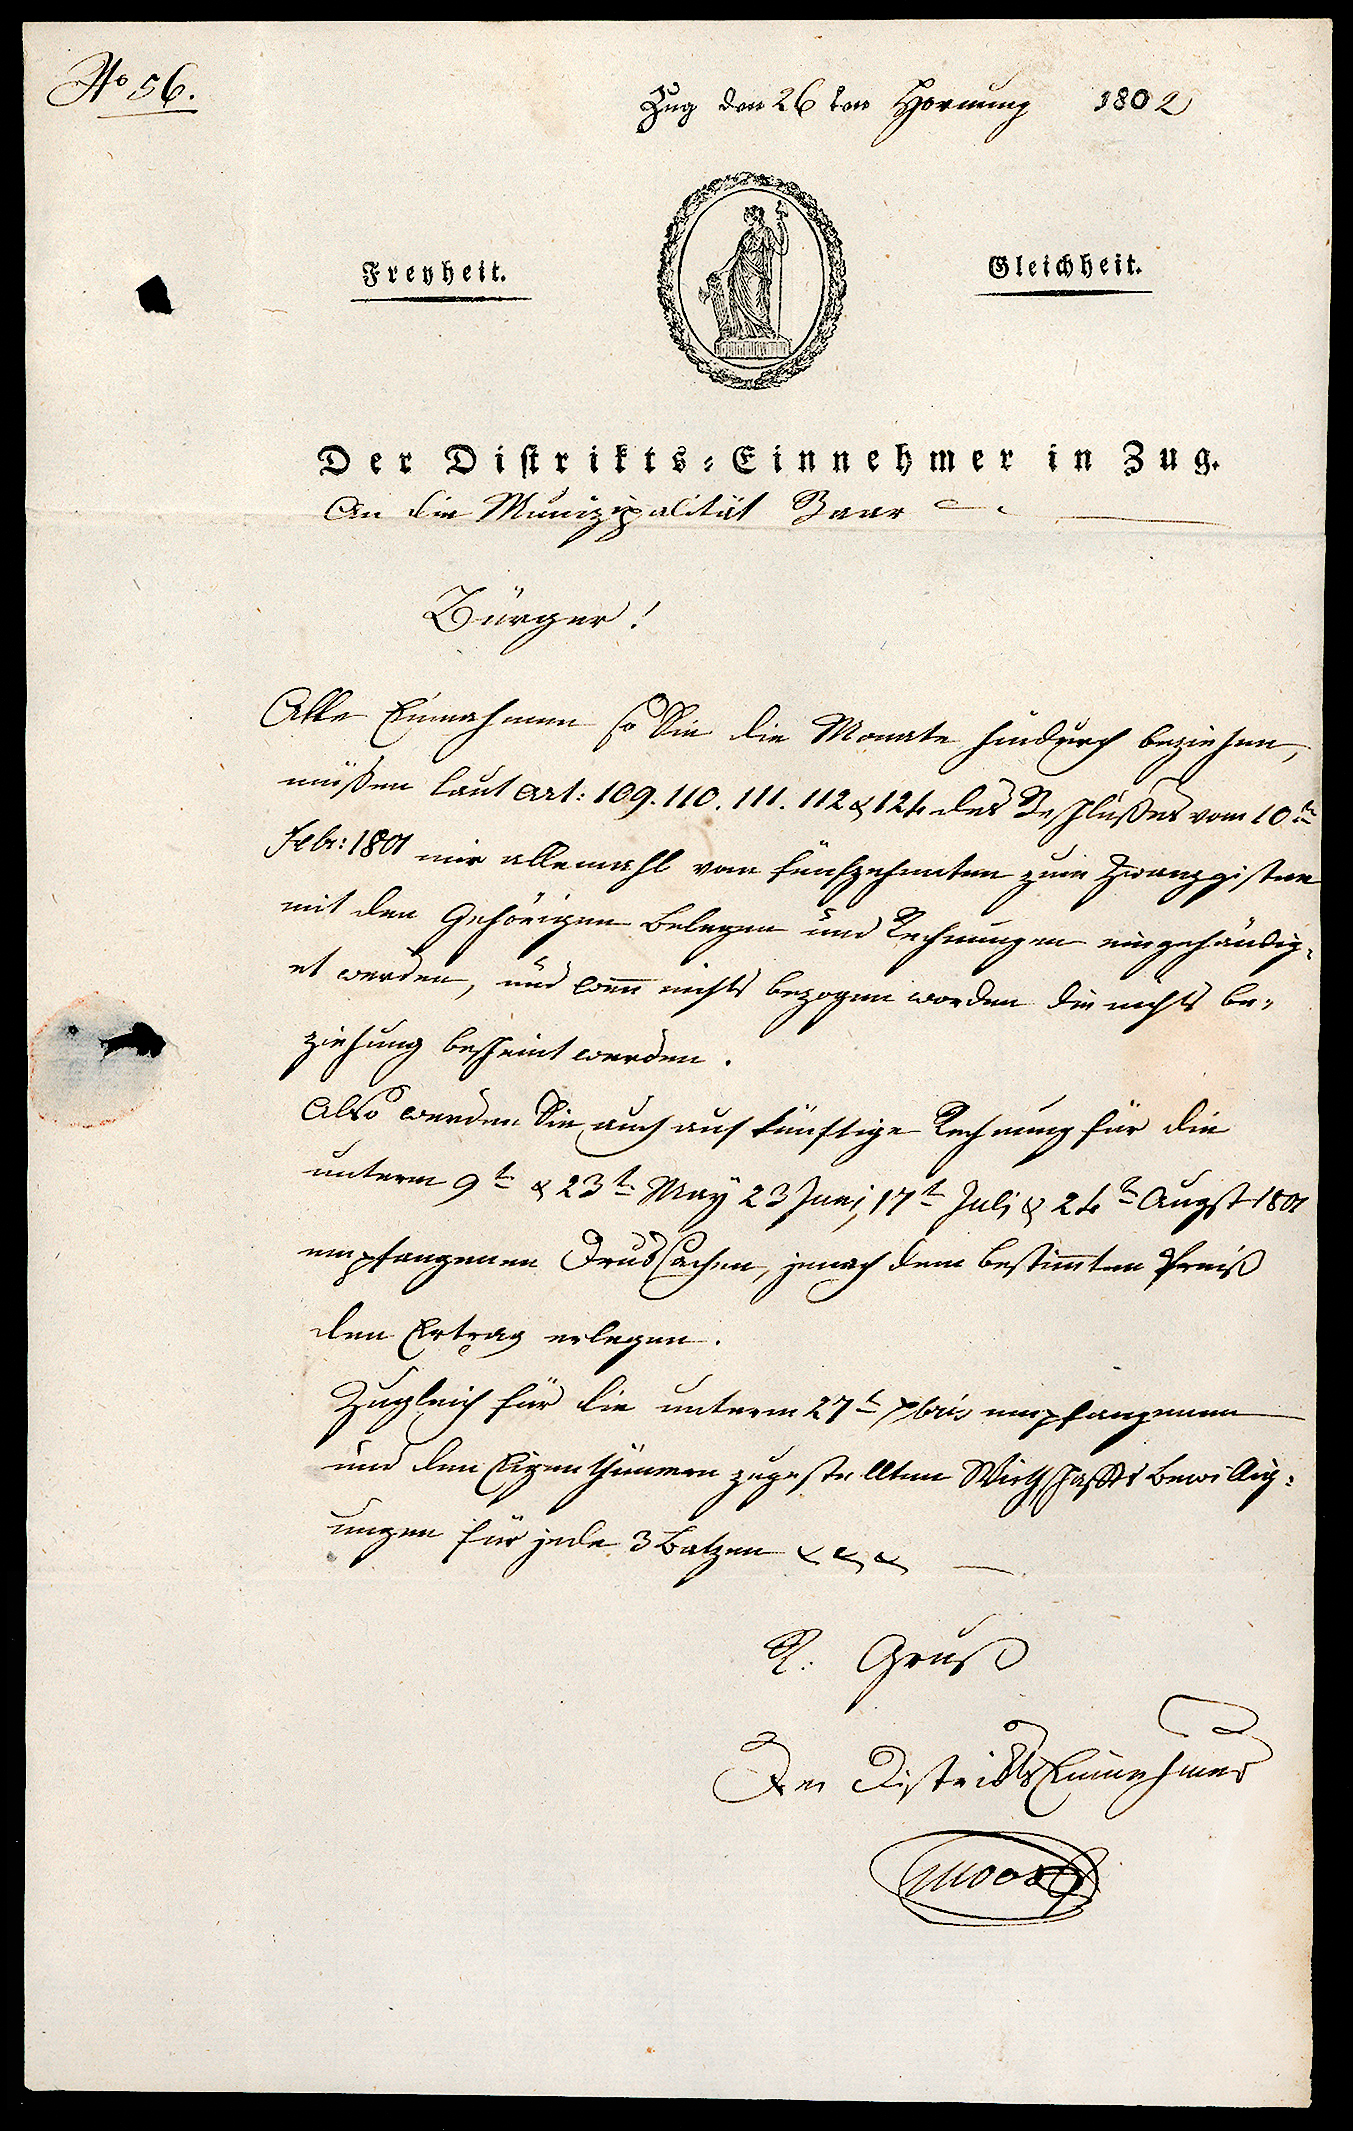 No 56.
Zug den 26ten Hornung 1802
Freyheit.
Gleichheit.
Der Distrikts-Einnehmer in Zug.
An die Munizipalität Baar
Bürger!
Alle Einnahmen so Sie die Monate hindurch beziehen,
müßen laut Art: 109. 110. 111. 112 & 124 des Beschlußes vom 10tn
Febr: 1801 mir allemahl vom fünfzehenten zum Zwanzgisten
mit den Gehörigen Belegen und Rechnungen eingehändig-
et werden, und wenn nichts bezogen worden die nichts be-
ziehung bescheint werden.
Also werden Sie auch auf künftige Rechnung für die
unterm 9tn & 23tn May 23 Juni, 17tn Juli & 24tn Augst 1801
empfangenen Drucksachen, je nach dem bestimten Preiß
den Ertrag erlegen.
Zugleich für die unterm 27tn empfangenen
und den Eigenthümern zugestellten Wirthschaffts Bewillig-
ungen für jede 3 Batzen
R: Gruß
Der Distrikts Einnehmer
Moos